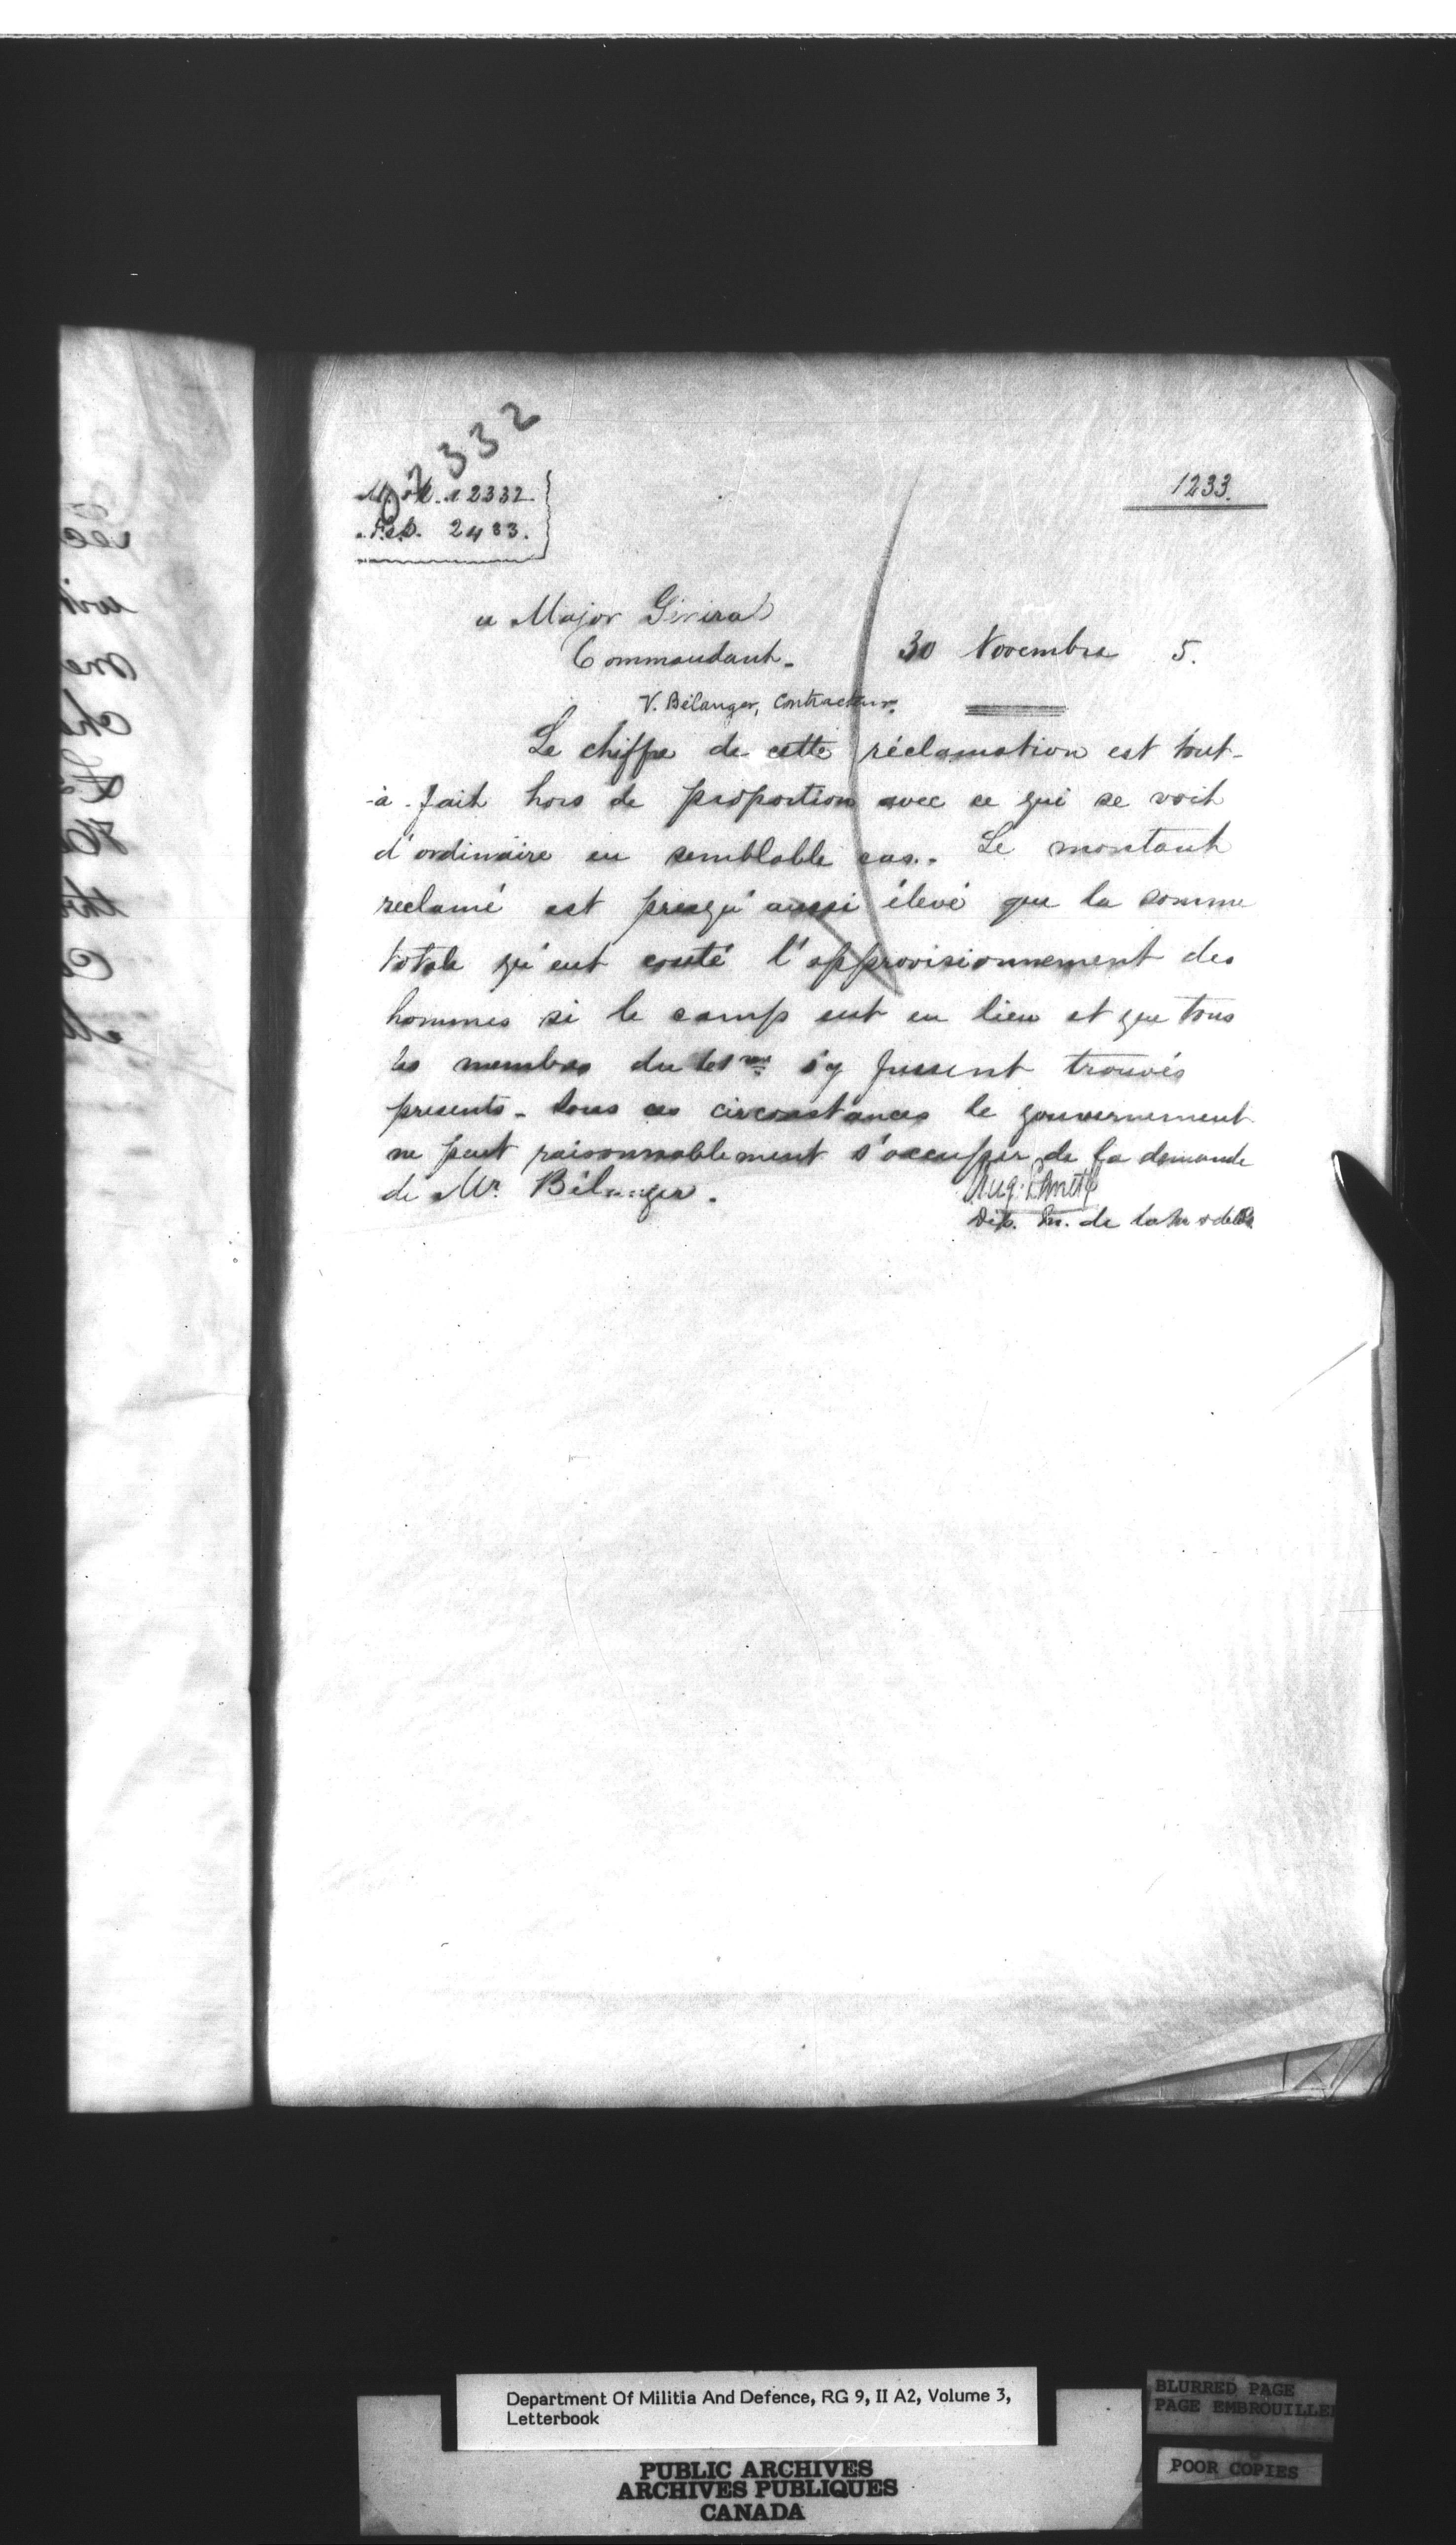 02332
12332.
2433.
1233.
Major Général
Commandant.
30 Novembre 5.
V. Bélanger, Contracteur.
Le chiffre de cette réclamation est tout-
-à-fait hors de proportion avec ce qui se voit
d'ordinaire en semblable cas. Le montant
reclamé est presqu'aussi élevé que la somme
totale qu'eut couté l'approvisionnement des
hommes si le camp eut eu lieu et que tous
les membres du s'y fussent trouvés
presents - Sous ces circonstances le gouvernement
ne peut raisonnablement s'occuper de la demande
de Mr. Bélanger.
Dép. M. de la M &
Department Of Militia And Defence, RG 9, II A2, Volume 3,
Letterbook
BLURRED PAGE
PAGE EMBROUILLE
POOR COPIES
PUBLIC ARCHIVES
ARCHIVES PUBLIQUES
CANADA